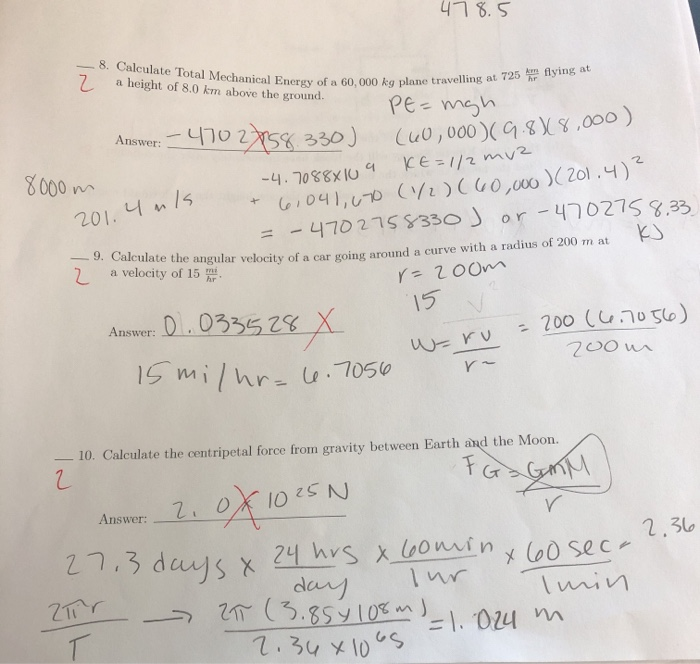 478.5
8. Calculate Total Mechanical Energy of a 60,000 kg plane travelling at 725 km/hr flying at
2 a height of 8.0 km above the ground.
PE = mgh
Answer: -4702758330J (60,000)(9.8)(8,000)
-4.7088x10^9 KE = 1/2 mv^2
8000 m
201.4 m/s + 6,041,670 (1/2)(60,000)(201.4)^2
= -4702758330J or -4702758.33
KJ
9. Calculate the angular velocity of a car going around a curve with a radius of 200 m at
2 a velocity of 15 mi/hr.
r = 200m
15 v^2
Answer: 0.033528 X
W = rv/r^2 = 200(6.7056)/200m
15 mi/hr = 6.7056
10. Calculate the centripetal force from gravity between Earth and the Moon.
2
FG = GmM/r
Answer: 2.0 x 10^25 N
27.3 days x 24 hrs/day x 60min/1hr x 60 sec/1min = 2.36
2πr/T → 2π(3.85x10^8m)/2.36x10^6s = 1.024 m